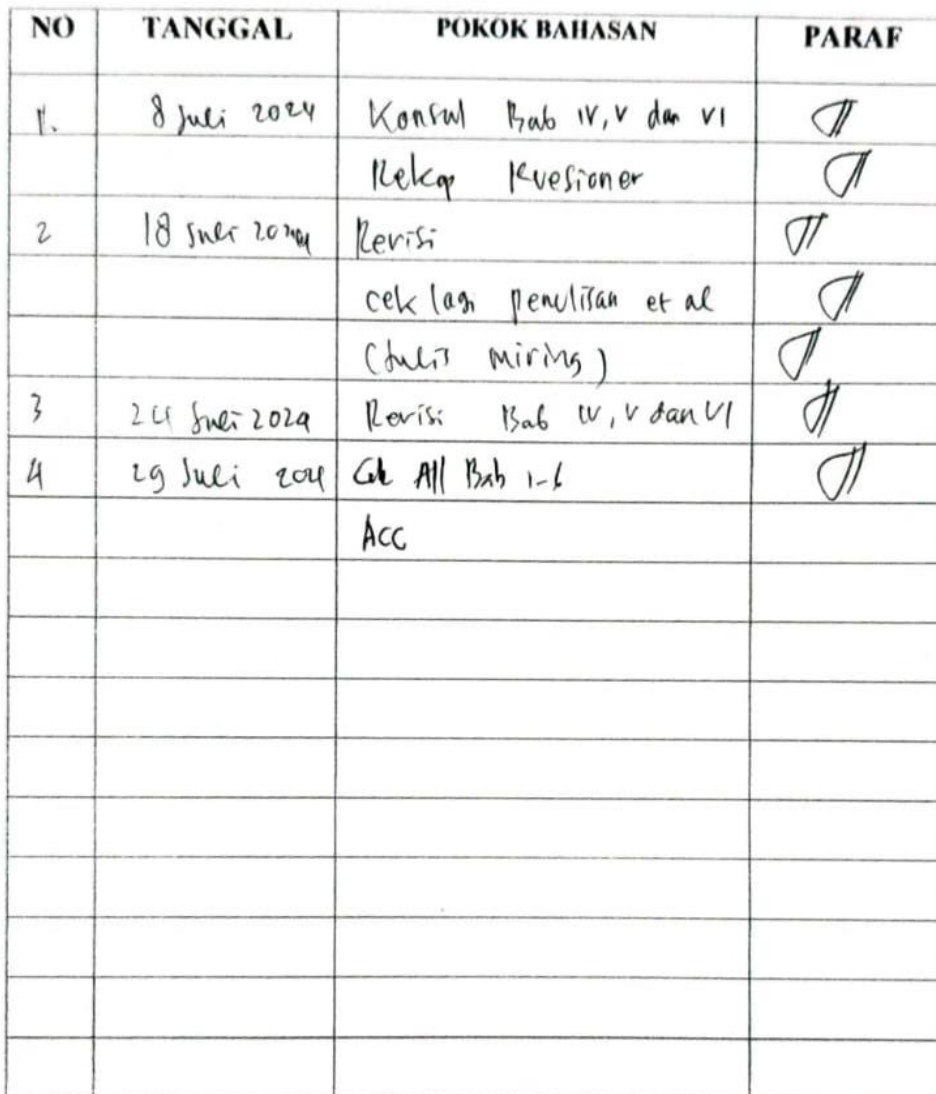 NO TANGGAL POKOK BAHASAN PARAF
1. 8 Juli 2024 Konsul Bab IV, V dan VI
Rekap Kuesioner
2 18 Juli 2024 Revisi
cek lagi penulisan et al
(tulis miring)
3 24 Juli 2024 Revisi Bab IV, V dan VI
4 29 Juli 2024 Cek All Bab 1-6
ACC